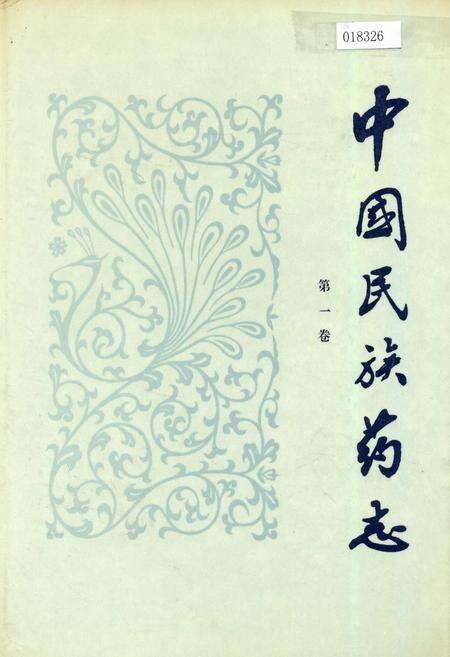 018326
中國民族药志
第一卷